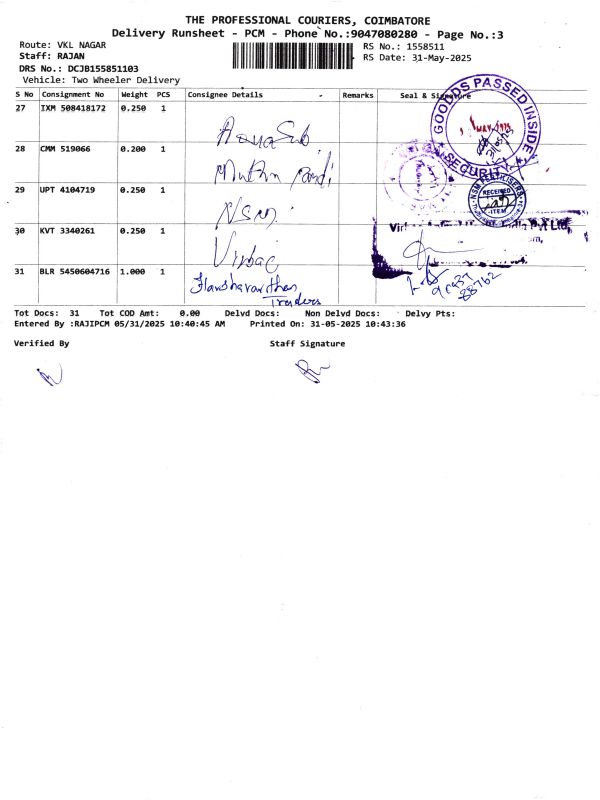 THE PROFESSIONAL COURIERS, COIMBATORE
Delivery Runsheet - PCM - Phone No.:9047080280 - Page No.:3
Route: VKL NAGAR
RS No.: 1558511
Staff: RAJAN
RS Date: 31-May-2025
DRS No.: DCJB155851103
Vehicle: Two Wheeler Delivery
S No Consignment No Weight PCS Consignee Details Remarks Seal & Signature
27 IXM 508418172 0.250 1
28 CMM 519066 0.200 1
29 UPT 4104719 0.250 1 NSM
30 KVT 3340261 0.250 1 Virbac
31 BLR 5450604716 1.000 1
Traders
GOODDS PASSED INSIDE
SECURITY
NSM FERTILISERS
RECEIVED
ITEM
Pvt Ltd
Tot Docs: 31 Tot COD Amt: 0.00 Delvd Docs: Non Delvd Docs: Delvy Pts:
Entered By :RAJIPCM 05/31/2025 10:40:45 AM Printed On: 31-05-2025 10:43:36
Verified By Staff Signature